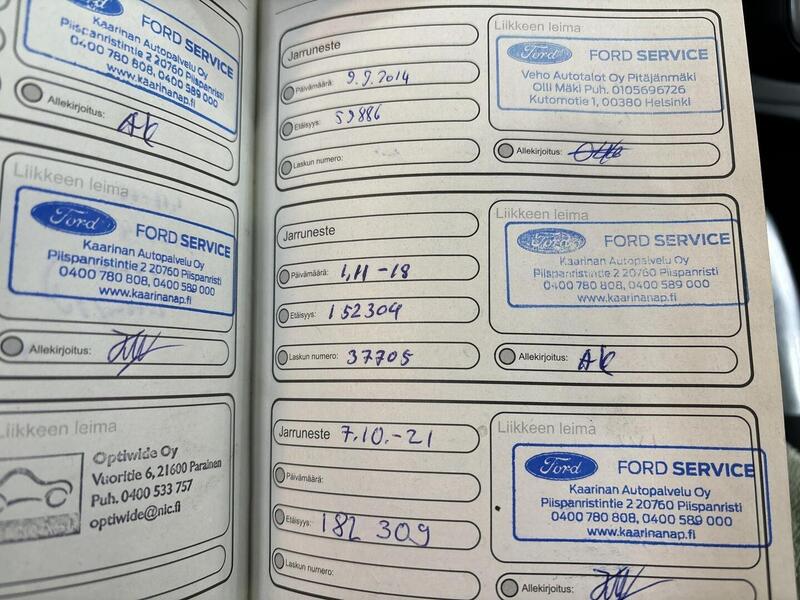 Ford
FORD SERVICE
Kaarinan Autopalvelu Oy
Piispanristintie 2 20760 Piispanristi
0400 780 808, 0400 589 000
www.kaarinanap.fi
Allekirjoitus: AK
Liikkeen leima
Ford
FORD SERVICE
Kaarinan Autopalvelu Oy
Piispanristintie 2 20760 Piispanristi
0400 780 808, 0400 589 000
www.kaarinanap.fi
Allekirjoitus:
Liikkeen leima
Optiwide Oy
Vuoritie 6, 21600 Parainen
Puh. 0400 533 757
optiwide@nic.fi
Jarruneste
Päivämäärä: 9.9.2014
Etäisyys: 59886
Laskun numero:
Liikkeen leima
Ford
FORD SERVICE
Veho Autotalot Oy Pitäjänmäki
Olli Mäki Puh. 0105696726
Kutomotie 1, 00380 Helsinki
Allekirjoitus:
Jarruneste
Päivämäärä: 1,11-18
Etäisyys: 152304
Laskun numero: 37705
Liikkeen leima
Ford
FORD SERVICE
Kaarinan Autopalvelu Oy
Piispanristintie 2 20760 Piispanristi
0400 780 808, 0400 589 000
www.kaarinanap.fi
Allekirjoitus: AK
Jarruneste 7.10.-21
Päivämäärä:
Etäisyys: 182 309
Laskun numero:
Liikkeen leima
Ford
FORD SERVICE
Kaarinan Autopalvelu Oy
Piispanristintie 2 20760 Piispanristi
0400 780 808, 0400 589 000
www.kaarinanap.fi
Allekirjoitus: